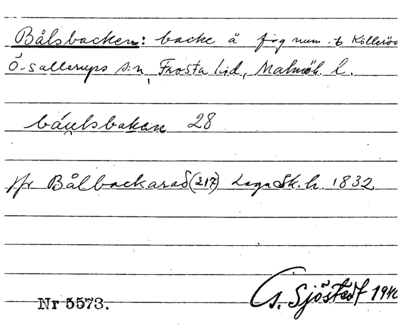 Bålsbacken: backe å fig num. b Kölleröd
Ö-sallerups s:n, Frosta hd, Malmöh. l.
båulsbakan 28
jfr Bålbackarad (217) Laga Sk. h. 1832
Nr 5573.
G. Sjöstedt 1940